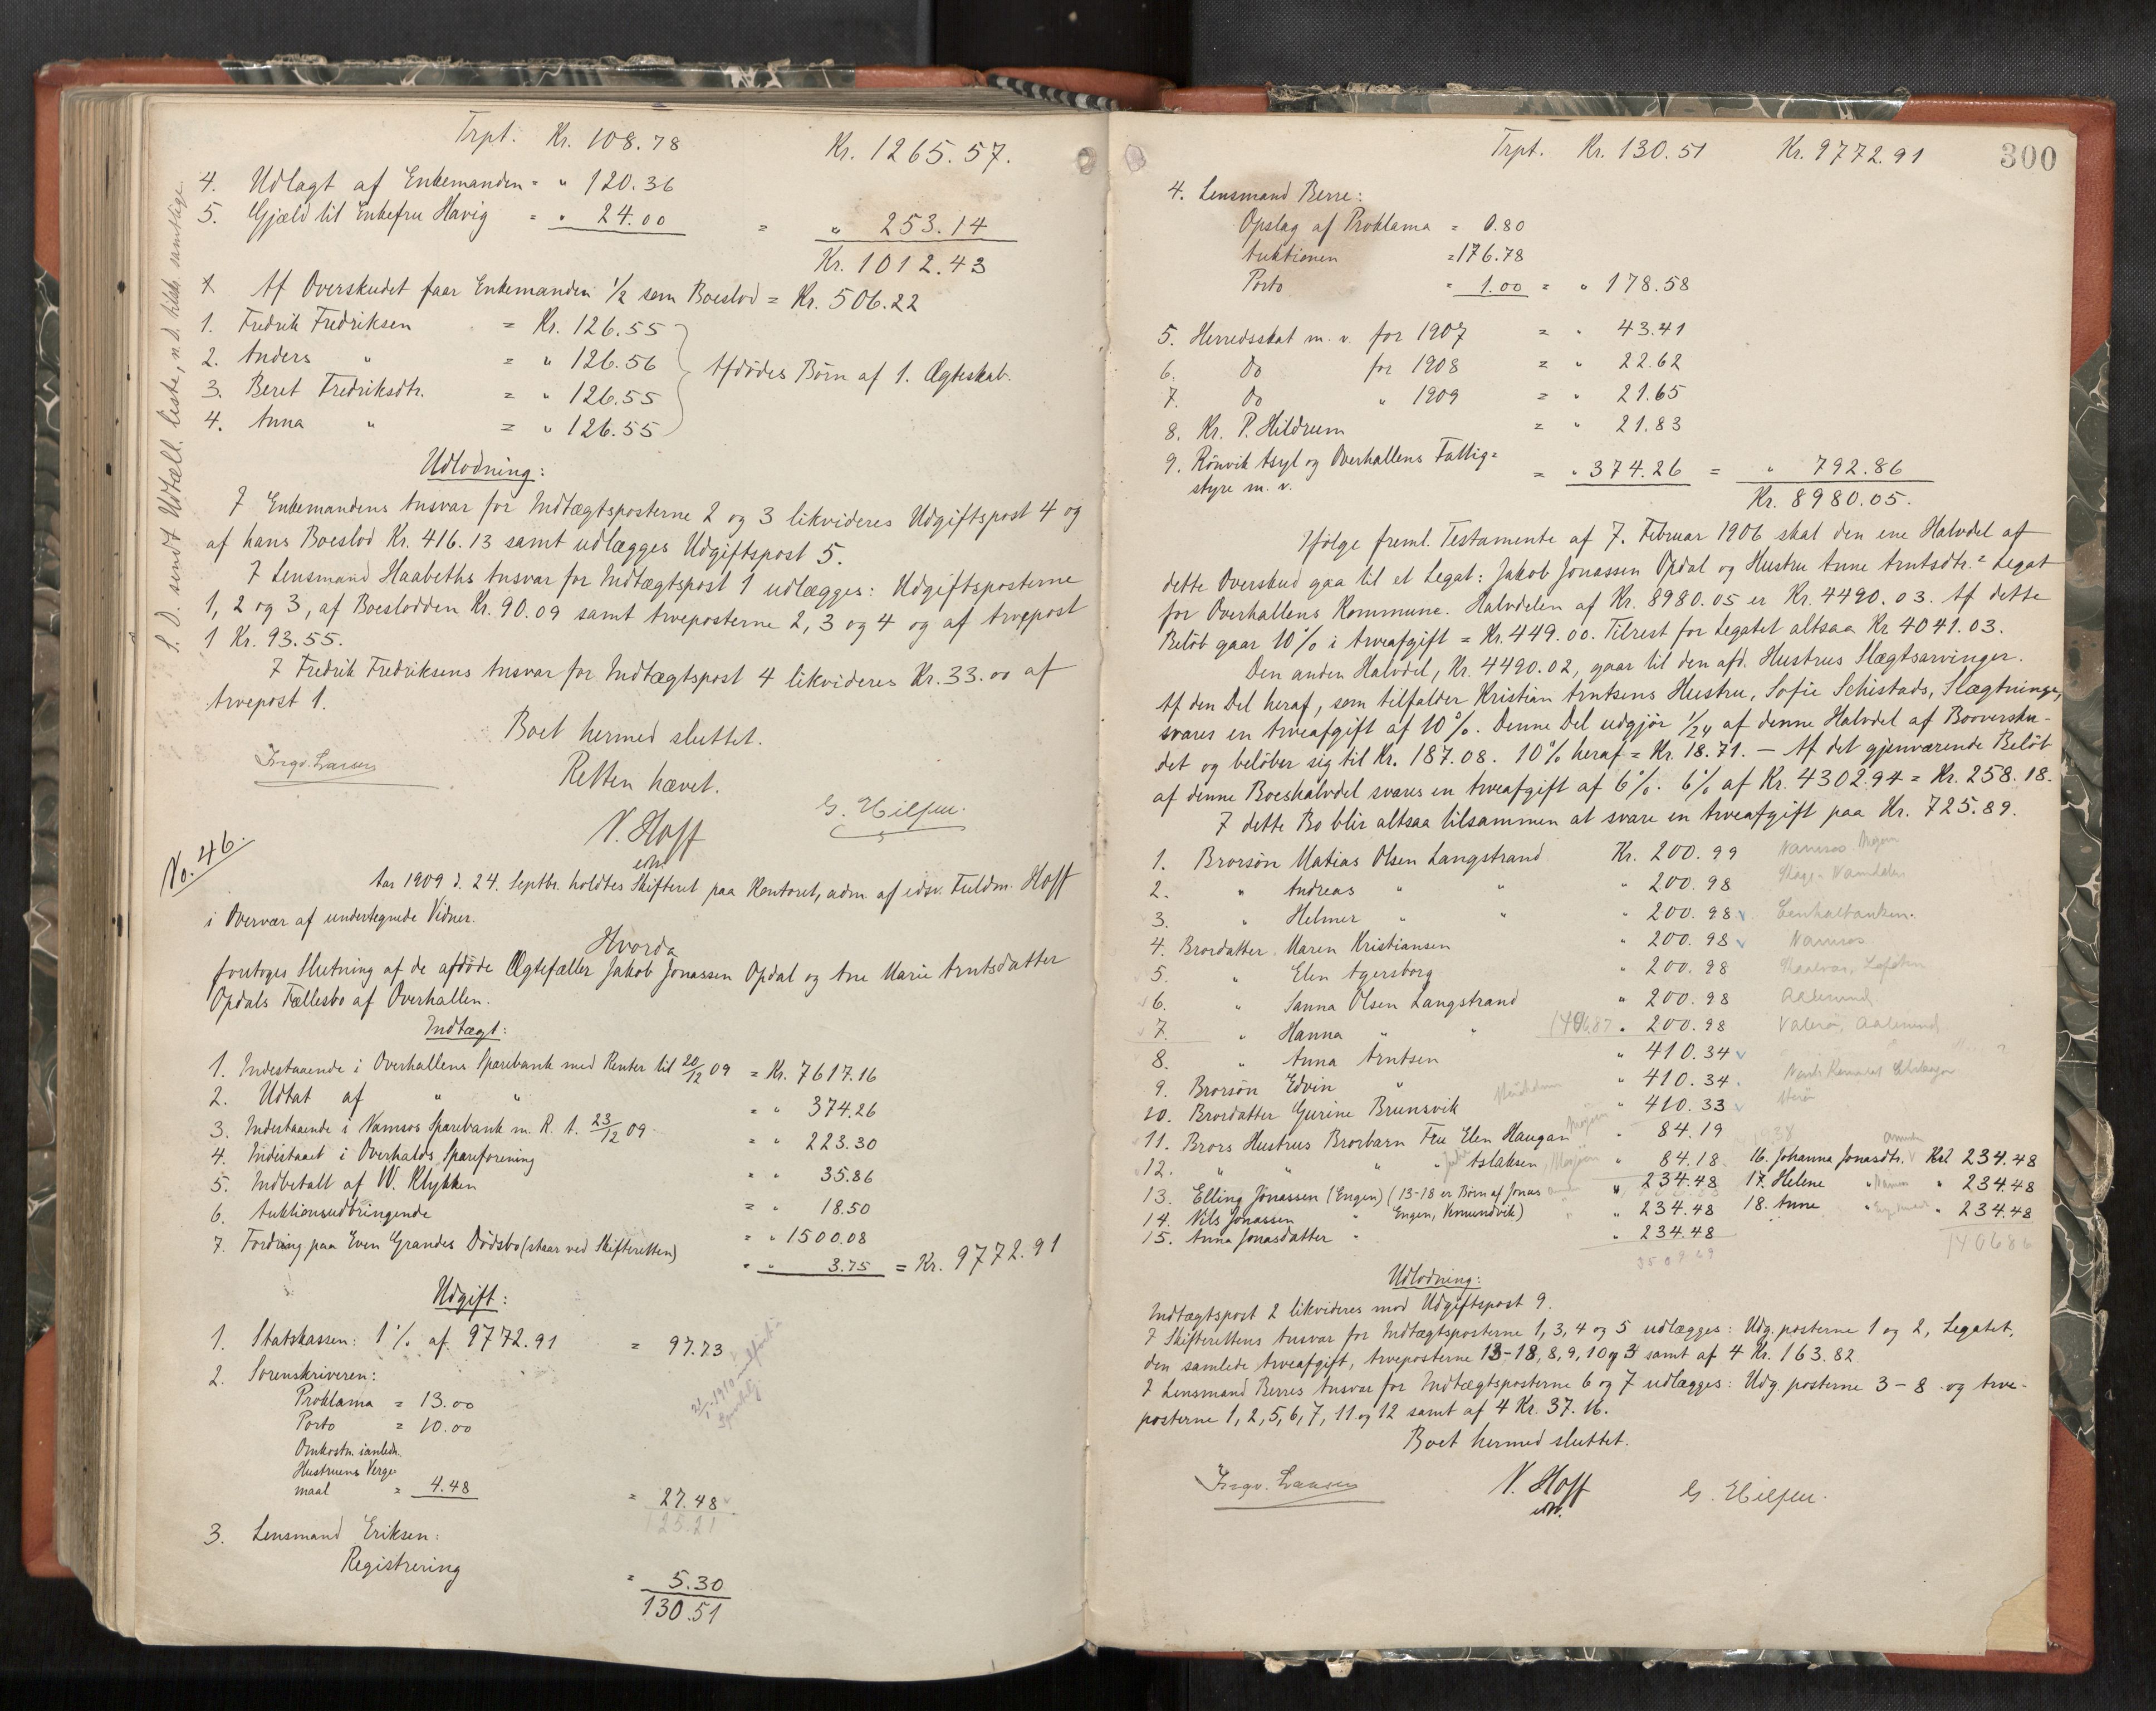 Trpt. Kr. 108.78 Kr. 1265.57.
4. Udlagt af Enkemanden = " 120.36
5. Gjæld til Enkefru Havig = " 24.00 = " 253.14
Kr. 1012.43
Af Overskudet faar Enkemanden 1/2 som Boeslod = Kr. 506.22
1. Fredrik Fredriksen = Kr. 126.55
2. Anders " = " 126.56
Afdødes Børn af 1. Ægteskab.
3. Beret Fredriksdtr. = " 126.55
4. Anna " = " 126.55
S. D. sendt Udtæll. liste, n. d. hlsk. samtlige
Udlodning:
I Enkemandens Ansvar for Indtægtsposterne 2 og 3 likvideres Udgiftspost 4 og
af hans Boeslod Kr. 416.13 samt udlægges Udgiftspost 5.
I Lensmand Haabeths Ansvar for Indtægtspost 1 udlægges: Udgiftsposterne
1, 2 og 3, af Boeslodden Kr. 90.09 samt Arveposterne 2, 3 og 4 og af Arvepost
1 Kr. 93.55.
I Fredrik Fredriksens Ansvar for Indtægtspost 4 likvideres Kr. 33.00 af
Arvepost 1.
Boet hermed sluttet.
Ingv. Larsen Retten hævet.
N. Hoff G. Hilsen.
edsv.
No. 46.
Aar 1909 d. 24. Septbr. holdtes Skifteret paa Kontoret, adm. af edsv. Fuldm. Hoff
i Overvær af undertegnede Vidner.
Hvorda
foretoges Slutning af de afdøde Ægtefæller Jakob Jonassen Opdal og Ane Marie Arntsdatter
Opdals Fællesbo af Overhallen.
Indtægt:
1. Indestaaende i Overhallens Sparebank med Renter til 20/12 09 = Kr. 7617.16
2. Udtat af " " = " 374.26
3. Indestaaende i Namsos Sparebank m. R. t. 23/12 09 = " 223.30
4. Indestaaet i Overhalds Spareforening = " 35.86
5. Indbetalt af W. Klykken = " 18.50
6. Auktionsudbringende = " 1500.08
7. Fordring paa Even Grandes Dødsbo (staar ved Skifteretten) = " 3.75 = Kr. 9772.91
Udgift:
1. Statskassen: 1% af 9772.91 = 97.73
2. Sorenskriveren:
Proklama = 13.00
Porto = 10.00
Omkostn. i anledn.
Hustruens Verge-
maal = 4.48 = 27.48
125.21
3. Lensmand Eriksen:
Registrering = 5.30
130.51
300
Trpt. Kr. 130.51 Kr. 9772.91
4. Lensmand Berre:
Opslag af Proklama = 0.80
Auktionen = 176.78
Porto = 1.00 = " 178.58
5. Herredsskat m. v. for 1907 = " 43.41
6. Do for 1908 = " 22.62
7. Do " 1909 = " 21.65
8. Kr. P. Hildrum = " 21.83
9. Rønvik Asyl og Overhallens Fattig=
styre m. v. = " 374.26 = " 792.86
Kr. 8980.05.
Ifølge freml. Testamente af 7. Februar 1906 skal den ene Halvdel af
dette Overskud gaa til et Legat: Jakob Jonassen Opdal og Hustru Anne Arntsdtr.s Legat
for Overhallens Kommune. Halvdelen af Kr. 8980.05 er Kr. 4490.03. Af dette
Beløb gaar 10% i Arveafgift = Kr. 449.00. Tilrest for Legatet altsaa Kr 4041.03.
Den anden Halvdel, Kr. 4490.02, gaar til den afd. Hustrus Slægtsarvinger.
Af den Del heraf, som tilfalder Kristian Arntsens Hustru, Sofie Schistads, Slægtninge,
svares en Arveafgift af 10%. Denne Del udgjør 1/24 af denne Halvdel af Booversku-
det og beløber sig til Kr. 187.08. 10% heraf = Kr. 18.71. — Af det gjenværende Beløb
af denne Boeshalvdel svares en Arveafgift af 6%. 6% af Kr. 4302.94 = Kr. 258.18.
I dette Bo blir altsaa tilsammen at svare en Arveafgift paa Kr. 725.89.
1. Brorsøn Matias Olsen Langstrand Kr. 200.99 Namsos
2. " Andreas " " " 200.98 Namdalen
3. " Helmer " " " 200.98
4. Brordatter Maren Kristiansen " 200.98 Namsos
5. " Elen Agersborg " 200.98 Lofoten
6. " Sanna Olsen Langstrand " 200.98 Aalesund
7. " Hanna " " 1406.87 " 200.98 Valerø, Aalesund
8. " Anna Arntsen " 410.34
9. Brorsøn Edvin " " 410.34
10. Brordatter Gurine Brunsvik " 410.33
11. Brors Hustrus Brorbarn Fru Elen Haugan Mosjøen " 84.19
12. " " " " Aslaksen, Mosjøen " 84.18 16. Johanna Jonasdtr. Kr. 234.48
13. Elling Jonassen (Engen) (13-18 er Børn af Jonas " 234.48 17. Helene " " 234.48
14. Nils Jonassen " Engen, Vemundvik) " 234.48 18. Anne " " 234.48
15. Anna Jonasdatter " " 234.48 1406 86
3509.69
Udlodning:
Indtægtspost 2 likvideres mod Udgiftspost 9.
I Skifterettens Ansvar for Indtægtsposterne 1, 3, 4 og 5 udlægges: Udg. posterne 1 og 2, Legatet,
den samlede Arveafgift, Arveposterne 13-18, 8, 9, 10 og 3 samt af 4 Kr. 163.82
I Lensmand Berres Ansvar for Indtægtsposterne 6 og 7 udlægges: Udg. posterne 3 - 8 og Arve-
posterne 1, 2, 5, 6, 7, 11 og 12 samt af 4 Kr. 37.16.
Boet hermed sluttet.
Ingv. Larsen N. Hoff G. Hilsen.
edsv.